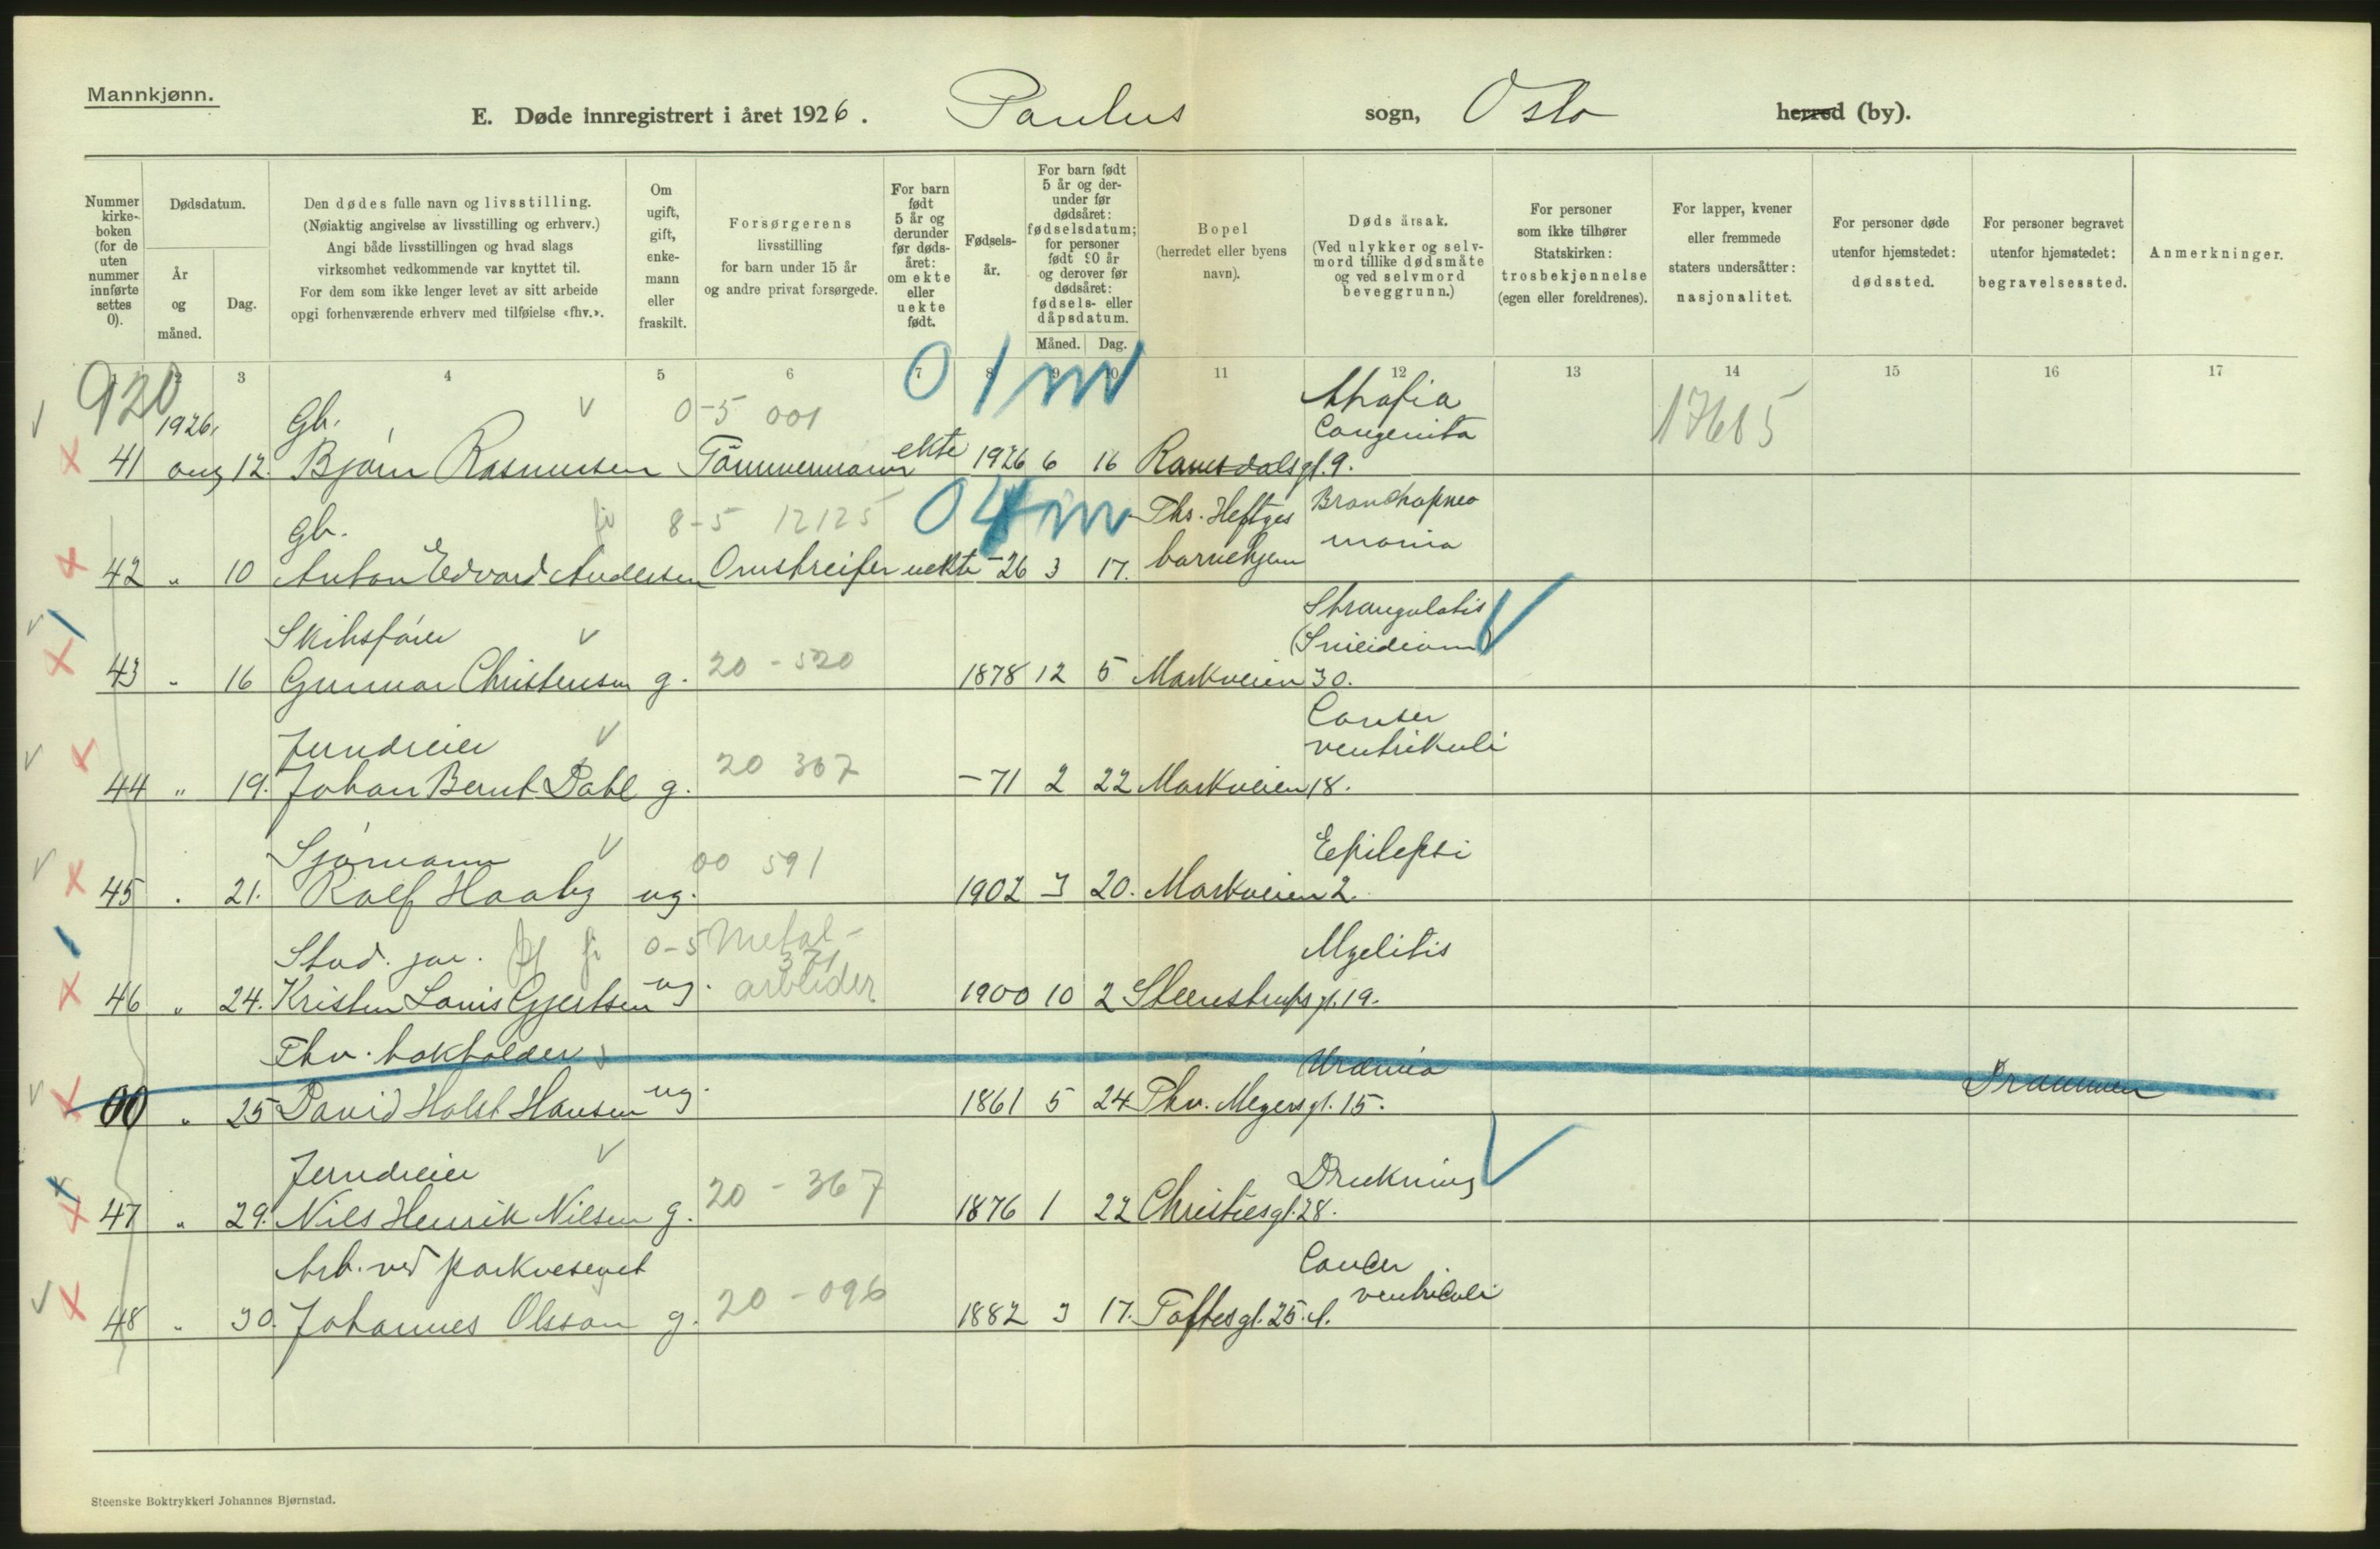 Mannkjønn.
E. Døde innregistrert i året 1926. Paulus sogn, Oslo herred (by).
Nummer kirkeboken (for de uten nummer innførte settes 0).
Dødsdatum.
År og måned.
Dag.
Den dødes fulle navn og livsstilling.
(Nøiaktig angivelse av livsstilling og erhverv.)
Angi både livsstillingen og hvad slags
virksomhet vedkommende var knyttet til.
For dem som ikke lenger levet av sitt arbeide
opgi forhenværende erhverv med tilføielse «fhv.».
Om ugift, gift, enkemann eller fraskilt.
Forsørgerens livsstilling
for barn under 15 år
og andre privat forsørgede.
For barn født 5 år og derunder før dødsåret: om ekte eller uekte født.
Fødselsår.
For barn født 5 år og derunder før dødsåret: fødselsdatum; for personer født 90 år og derover før dødsåret: fødsels- eller dåpsdatum.
Måned. Dag.
Bopel
(herredet eller byens navn).
Dødsårsak.
(Ved ulykker og selvmord tillike dødsmåte og ved selvmord beveggrunn.)
For personer som ikke tilhører Statskirken: trosbekjennelse (egen eller foreldrenes).
For lapper, kvener eller fremmede staters undersåtter: nasjonalitet.
For personer døde utenfor hjemstedet: dødssted.
For personer begravet utenfor hjemstedet: begravelsessted.
Anmerkninger.
3 4 5 6 7 8 9 10 11 12 13 14 15 16 17
920 01m
1926. Gb. 0-5 001 Athrofia Congenita 17685
41 aug 12. Bjørn Rasmussen Tømmermann ekte 1926 6 16 Ramsdalsgt. 9.
Gb. 8-5 12125 04m Ths. Heftyes Bronchopneumonia
42 " 10 Anton Edvard Andersen Omstreifer uekte -26 3 17. barnehjem
Skibsfører Strangulatis (Suicidium)
43 " 16 Gunnar Christensen g. 20-520 1878 12 5 Markveien 30.
Jerndreier Canser ventrikuli
44 " 19. Johan Bernt Dahl g. 20 367 -71 2 22 Markveien 18.
Sjømann Eepilepsi
45 . 21. Rolf Haaby ug. 00 591 1902 3 20. Markveien 2.
Stud. jur. 0-5 Metal- 371 arbeider Myelitis
46 " 24. Kristen Louis Gjertsen ug. 1900 10 2 Steenstrupsgt. 19.
Fhv. bokholder Urämia Drammen
00 " 25 David Holst Hansen ug. 1861 5 24 Thv. Meyersgt. 15.
Jerndreier Drukning
47 " 29. Nils Henrik Nilsen g. 20-367 1876 1 22 Christiesgt. 28.
Arb. ved parkvesenet Cancer ventriculi
48 " 30. Johannes Olsson g. 20-096 1882 3 17. Toftesgt. 25.
Steenske Boktrykkeri Johannes Bjørnstad.